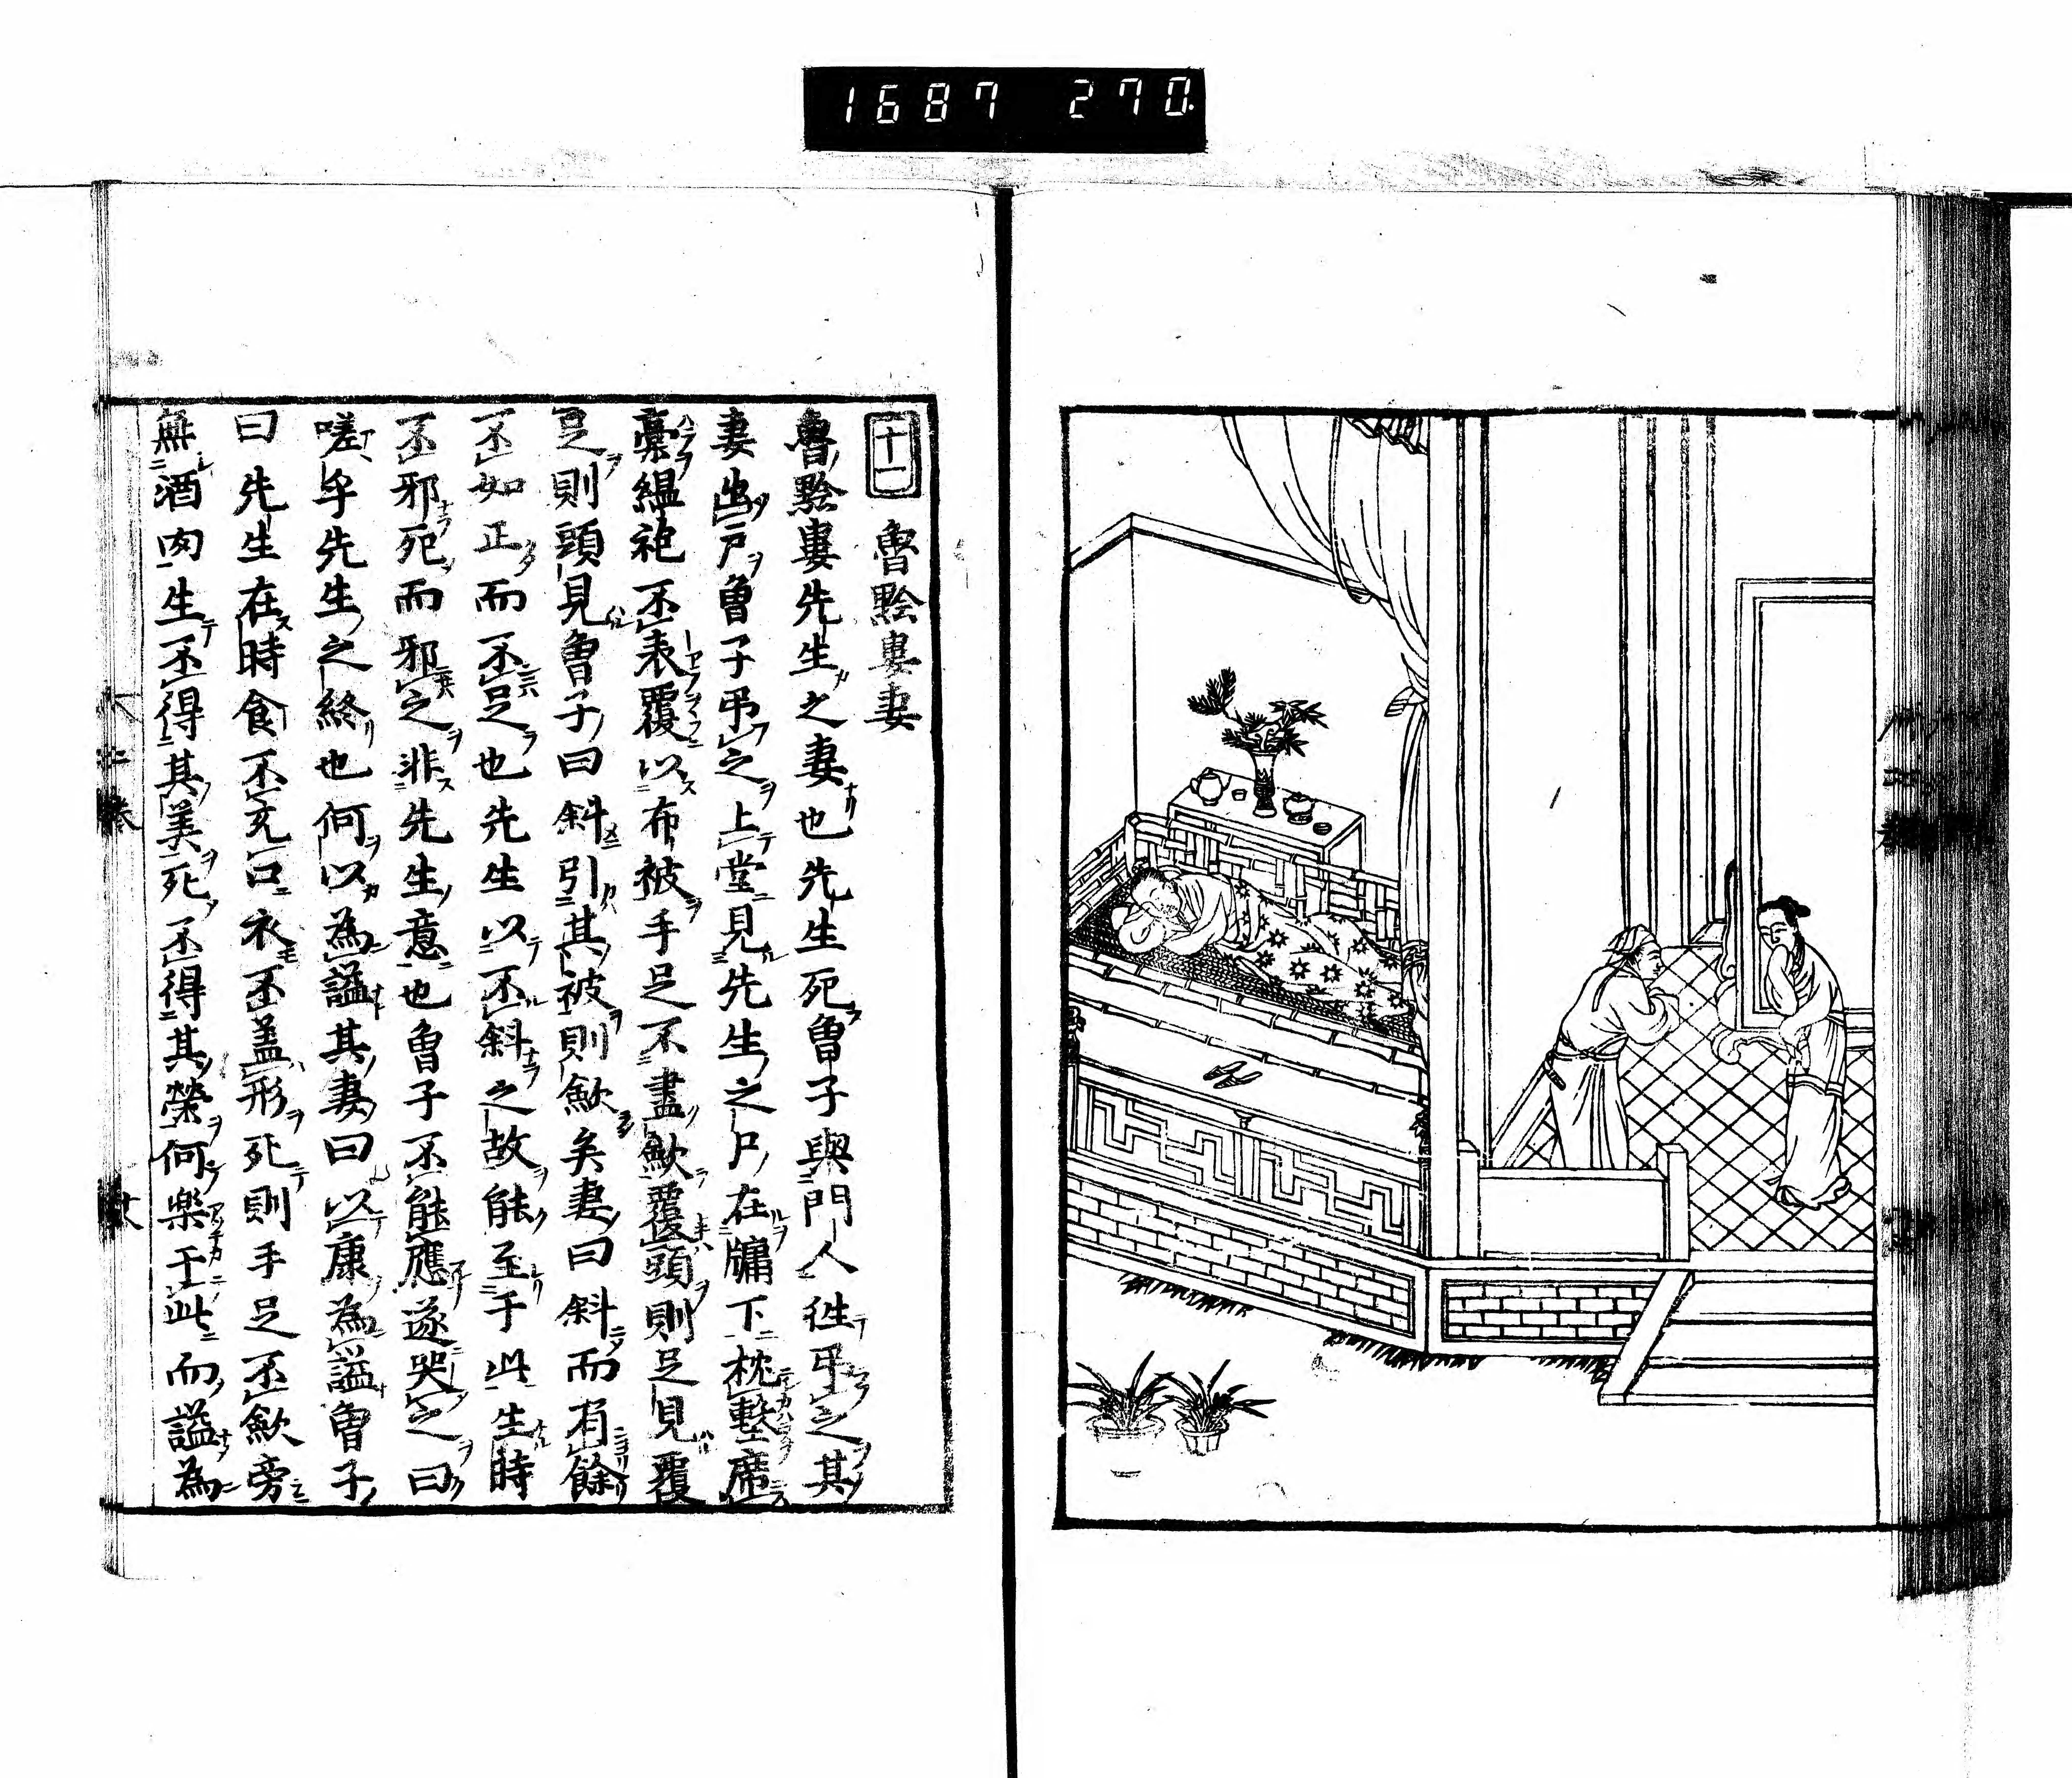 1687 270.
十一 魯黔婁妻
魯黔婁先生之妻也先生死曾子與門人徃弔之其
妻出戸曾子弔之上堂見先生之尸在牖下枕墼席
藁緼袍不表覆以布被手足不盡歛覆頭則足見覆
足則頭見曾子曰斜引其被則歛矣妻曰斜而有餘
不如正而不足也先生以不斜之故能至于此生時
不邪死而邪之非先生意也曾子不能應遂哭之曰
嗟乎先生之終也何以為謚其妻曰以康為謚曾子
曰先生在時食不充口衣不盖形死則手足不歛旁
無酒肉生不得其美死不得其榮何楽于此而謚為